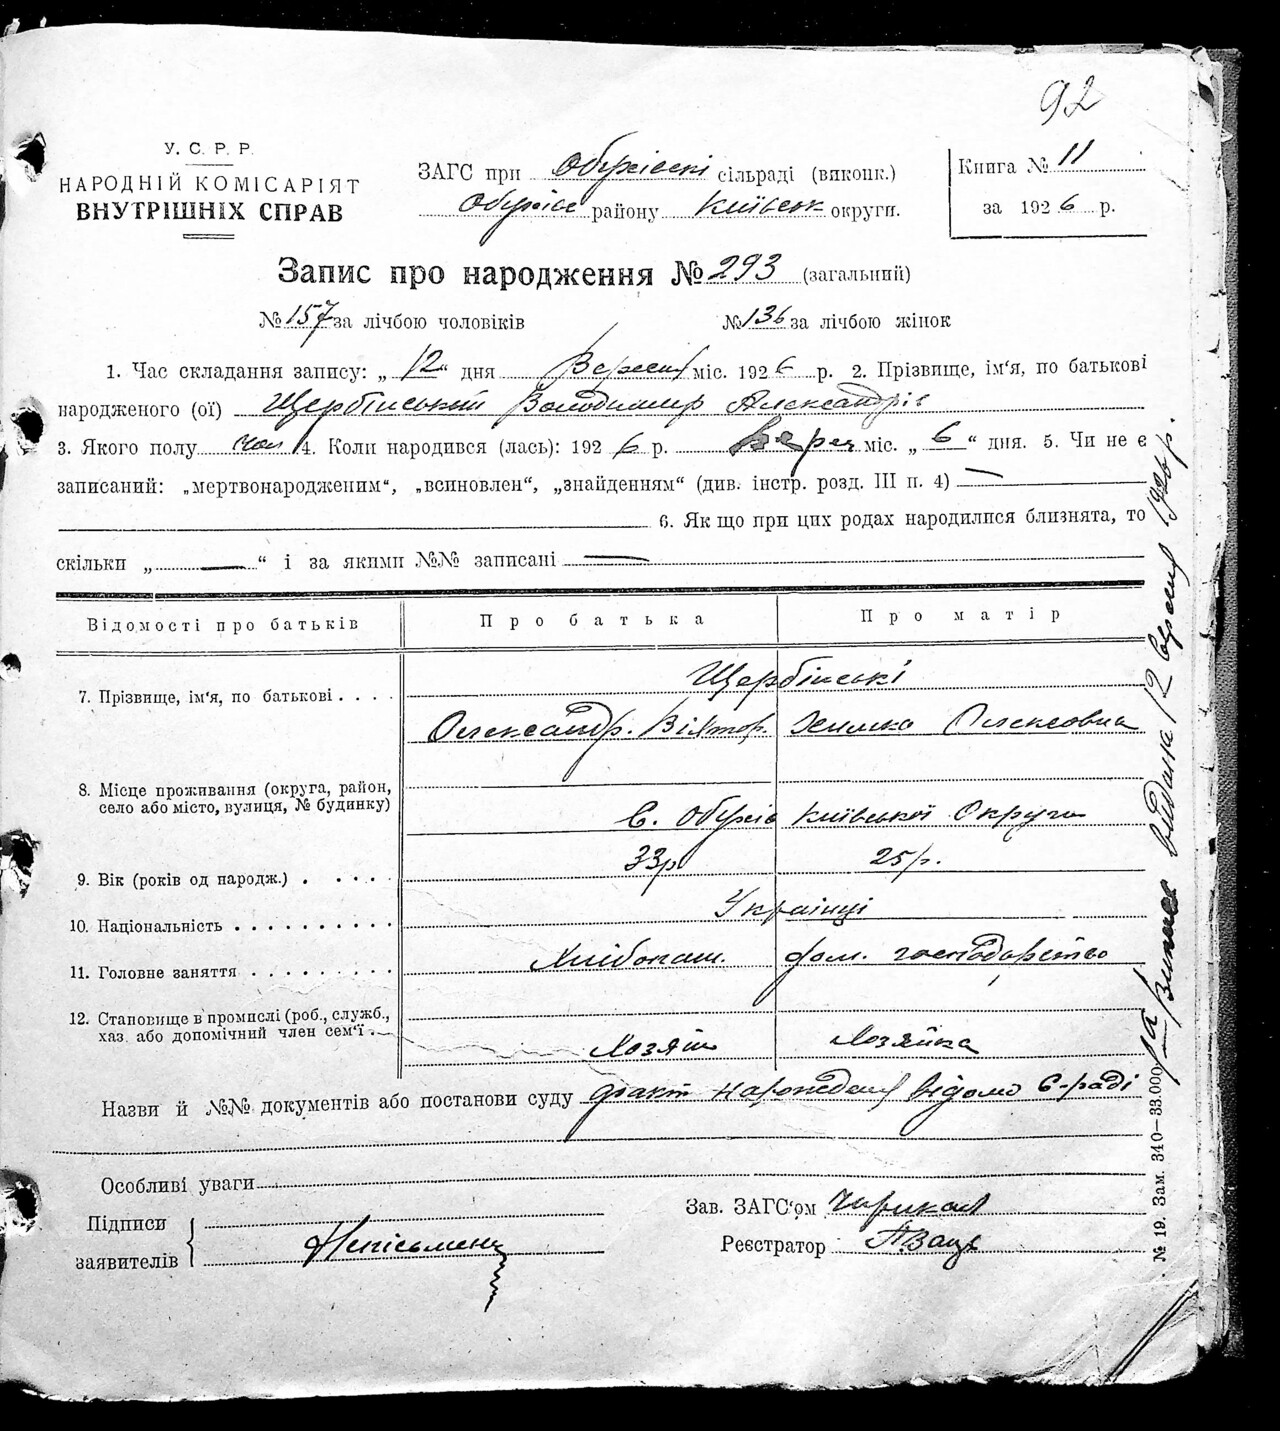 92
У. С. Р. Р.
НАРОДНІЙ КОМІСАРІЯТ
ВНУТРІШНІХ СПРАВ
ЗАГС при Обухівскі сільраді (виконк.)
Обухівс району Київськ округи.
Книга № 11
за 1926 р.
Запис про народження № 293 (загальний)
№ 157 за лічбою чоловіків № 136 за лічбою жінок
1. Час складання запису: „ 12 “ дня Вересня міс. 1926 р. 2. Прізвище, ім'я, по батькові
народженого (ої) Щербінський Володимир Александрів
3. Якого полу чол 4. Коли народився (лась): 1926 р. Верес міс. „ 6 “ дня. 5. Чи не є
записаний: „мертвонародженим“, „всиновлен“, „знайденням“ (див. інстр. розд. III п. 4) —
6. Як що при цих родах народилися близнята, то
скільки „ — “ і за якими №№ записані —
Відомості про батьків Про батька Про матір
7. Прізвище, ім'я, по батькові . . . . Щербінські
Олександр. Віктор. Олексовна
8. Місце проживання (округа, район,
село або місто, вулиця, № будинку) С. Обухів Київської Округи
9. Вік (років од народж.) . . . . . 33р 25р.
10. Національність . . . . . . . . . . Українці
11. Головне заняття . . . . . . . . . Хлібопаш. дом. господарство
12. Становище в промислі (роб., служб.,
хаз. або допомічний член сем'ї . Хозяїн Хозяйка
Назви й №№ документів або постанови суду факт народження відомо С-раді
Особливі уваги
Підписи
заявителів Непісьмен
Зав. ЗАГС'ом
Реєстратор
№ 19. Зам. 340—33.000
Випис видана 12 вересня 1926 р.